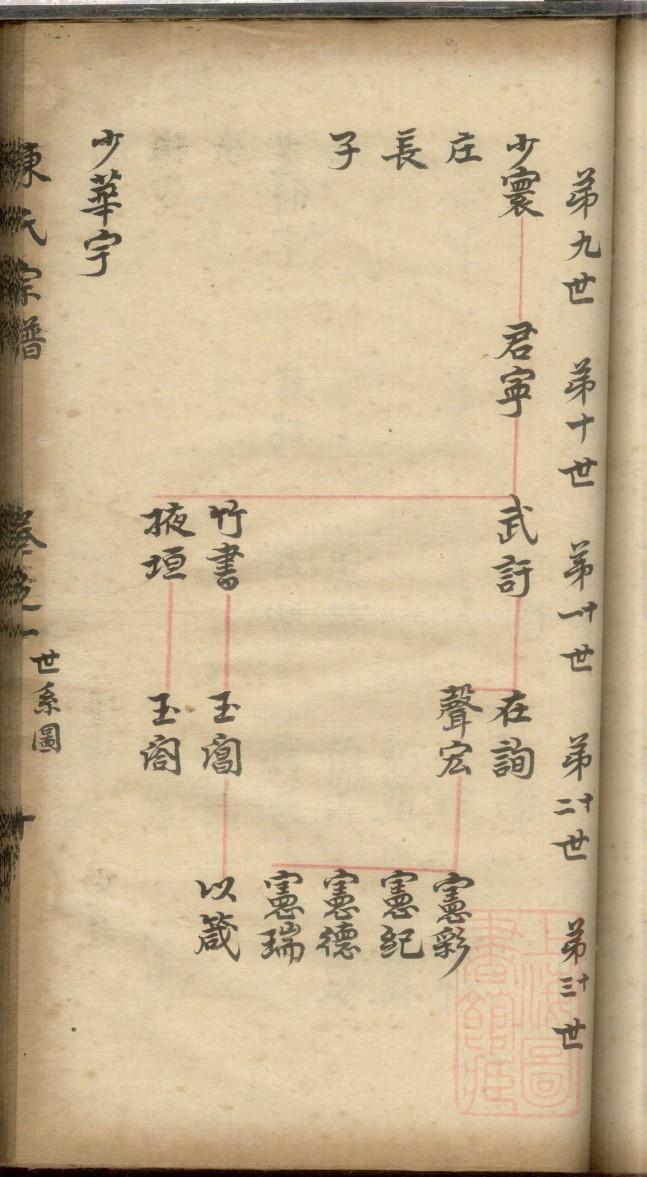 第九世 第十世 第十一世 第十二世 第十三世
少寰 君寧 武訏 在詢
庄 聲宏 憲彩
長 憲紀
子 憲德
憲瑞
竹書 玉
以箴
掖垣 玉
少華宇
陳氏宗譜 卷之一 世系圖 十
上海圖書館藏